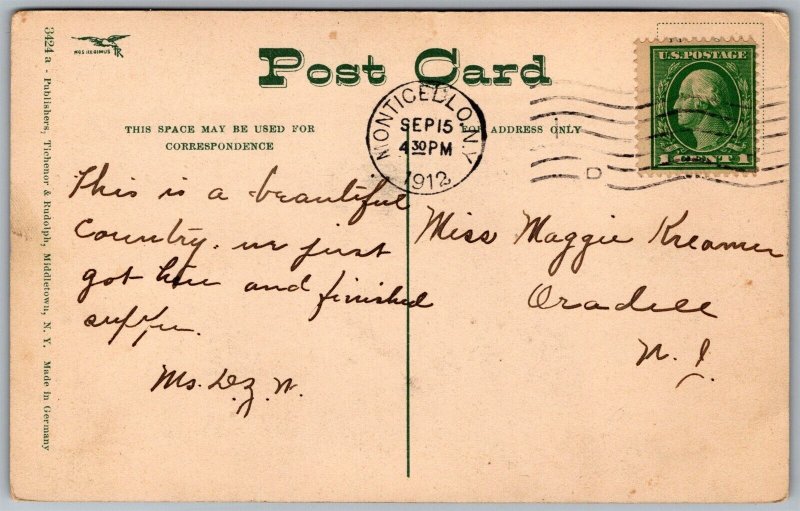 Post Card
THIS SPACE MAY BE USED FOR
CORRESPONDENCE
FOR ADDRESS ONLY
MONTICELLO, N.Y.
SEP 15
4 30 PM
1912
D
U.S. POSTAGE
1 CENT 1
This is a beautiful
Country. we just
got here and finished
supper.
Miss Maggie Kreamer
Oradell
N. J.
3424 a - Publishers, Tichenor & Rudolph, Middletown, N. Y. Made in Germany